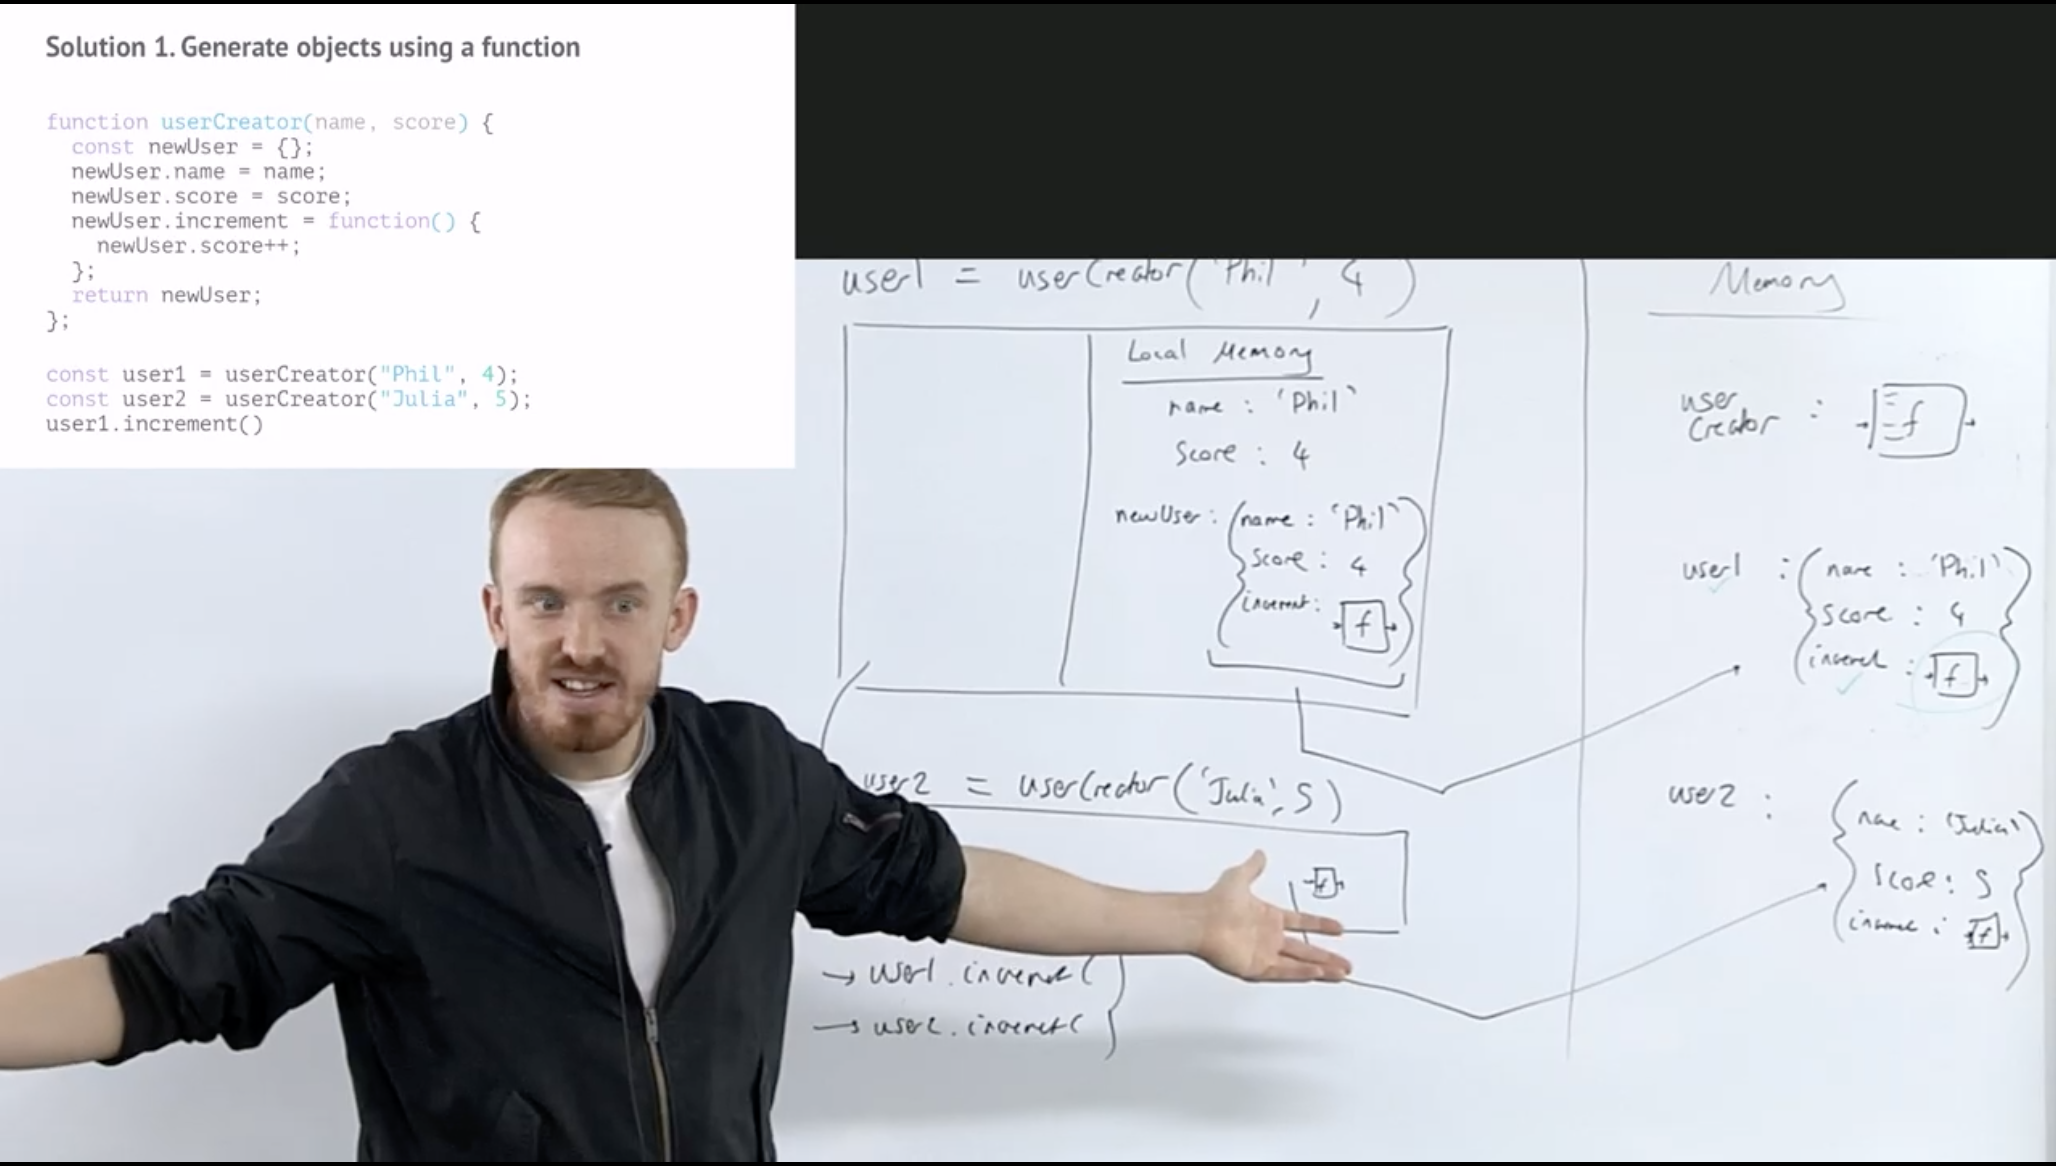 Solution 1. Generate objects using a function
function userCreator(name, score) {
const newUser = {};
newUser.name = name;
newUser.score = score;
newUser.increment = function() {
newUser.score++;
};
return newUser;
};
const user1 = userCreator("Phil", 4);
const user2 = userCreator("Julia", 5);
user1.increment()
user1 = userCreator('Phil', 4)
Local Memory
name : 'Phil'
Score : 4
newUser: {name : 'Phil'
Score : 4
increment: f}
user2 = userCreator('Julia', 5)
f
→ user1.increment(
→ user2.increment(
Memory
user
Creator : f
user1 : {name : 'Phil'
Score : 4
increment : f}
user2 : {name : 'Julia'
Score : 5
increment : f}